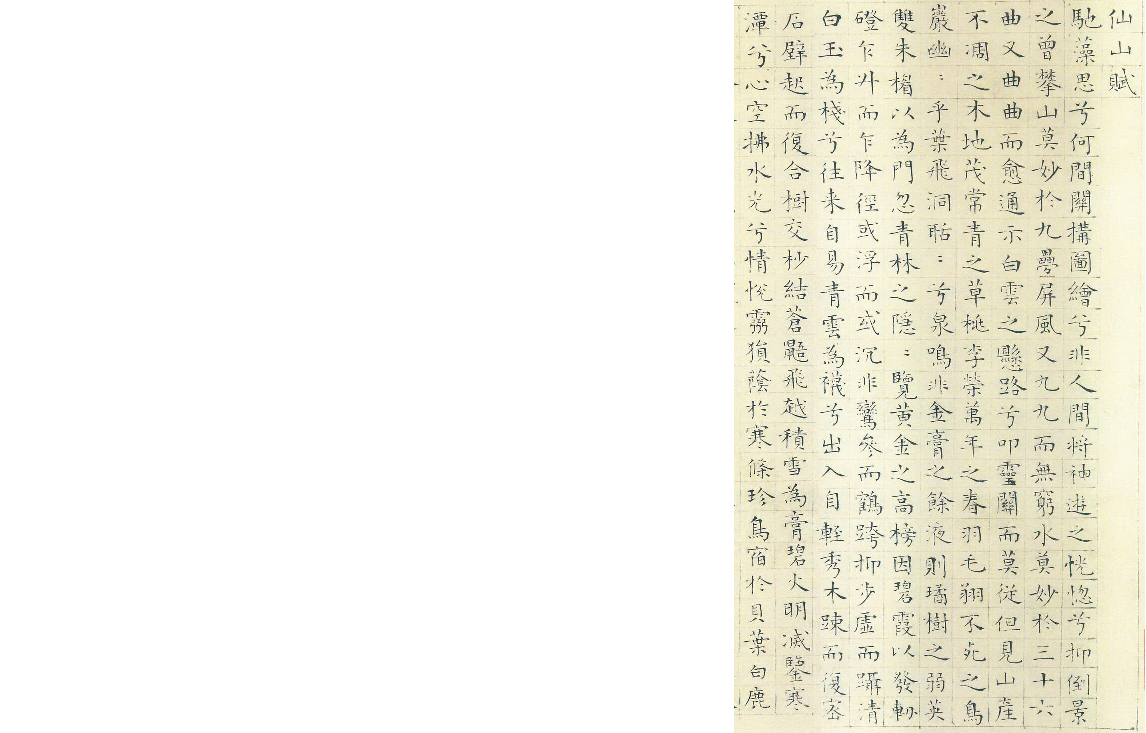 仙山賦
馳藻思兮何間關構圖繪兮非人間將神遊之恍惚兮抑倒景
之曾攀山莫妙於九疊屏風又九九而無窮水莫妙於三十六
曲又曲曲而愈通示白雲之懸路兮叩靈關而莫從但見山產
不凋之木地茂常青之草桃李榮萬年之春羽毛翔不死之鳥
巖幽：乎葉飛洞聒：兮泉鳴非金膏之餘液則璚樹之弱英
雙朱楣以為門忽青林之隱：覽黃金之高榜因碧霞以發軔
磴乍升而乍降徑或浮而或沉非鸞參而鶴跨抑步虛而躡清
白玉為棧兮往來自易青雲為襪兮出入自輕秀木踈而復密
石壁起而復合樹交杪結蒼鼯飛越積雪為膏碧火明滅鑒寒
潭兮心空拂水光兮情悅霧猿蔭於寒條珍鳥宿於貝葉白鹿